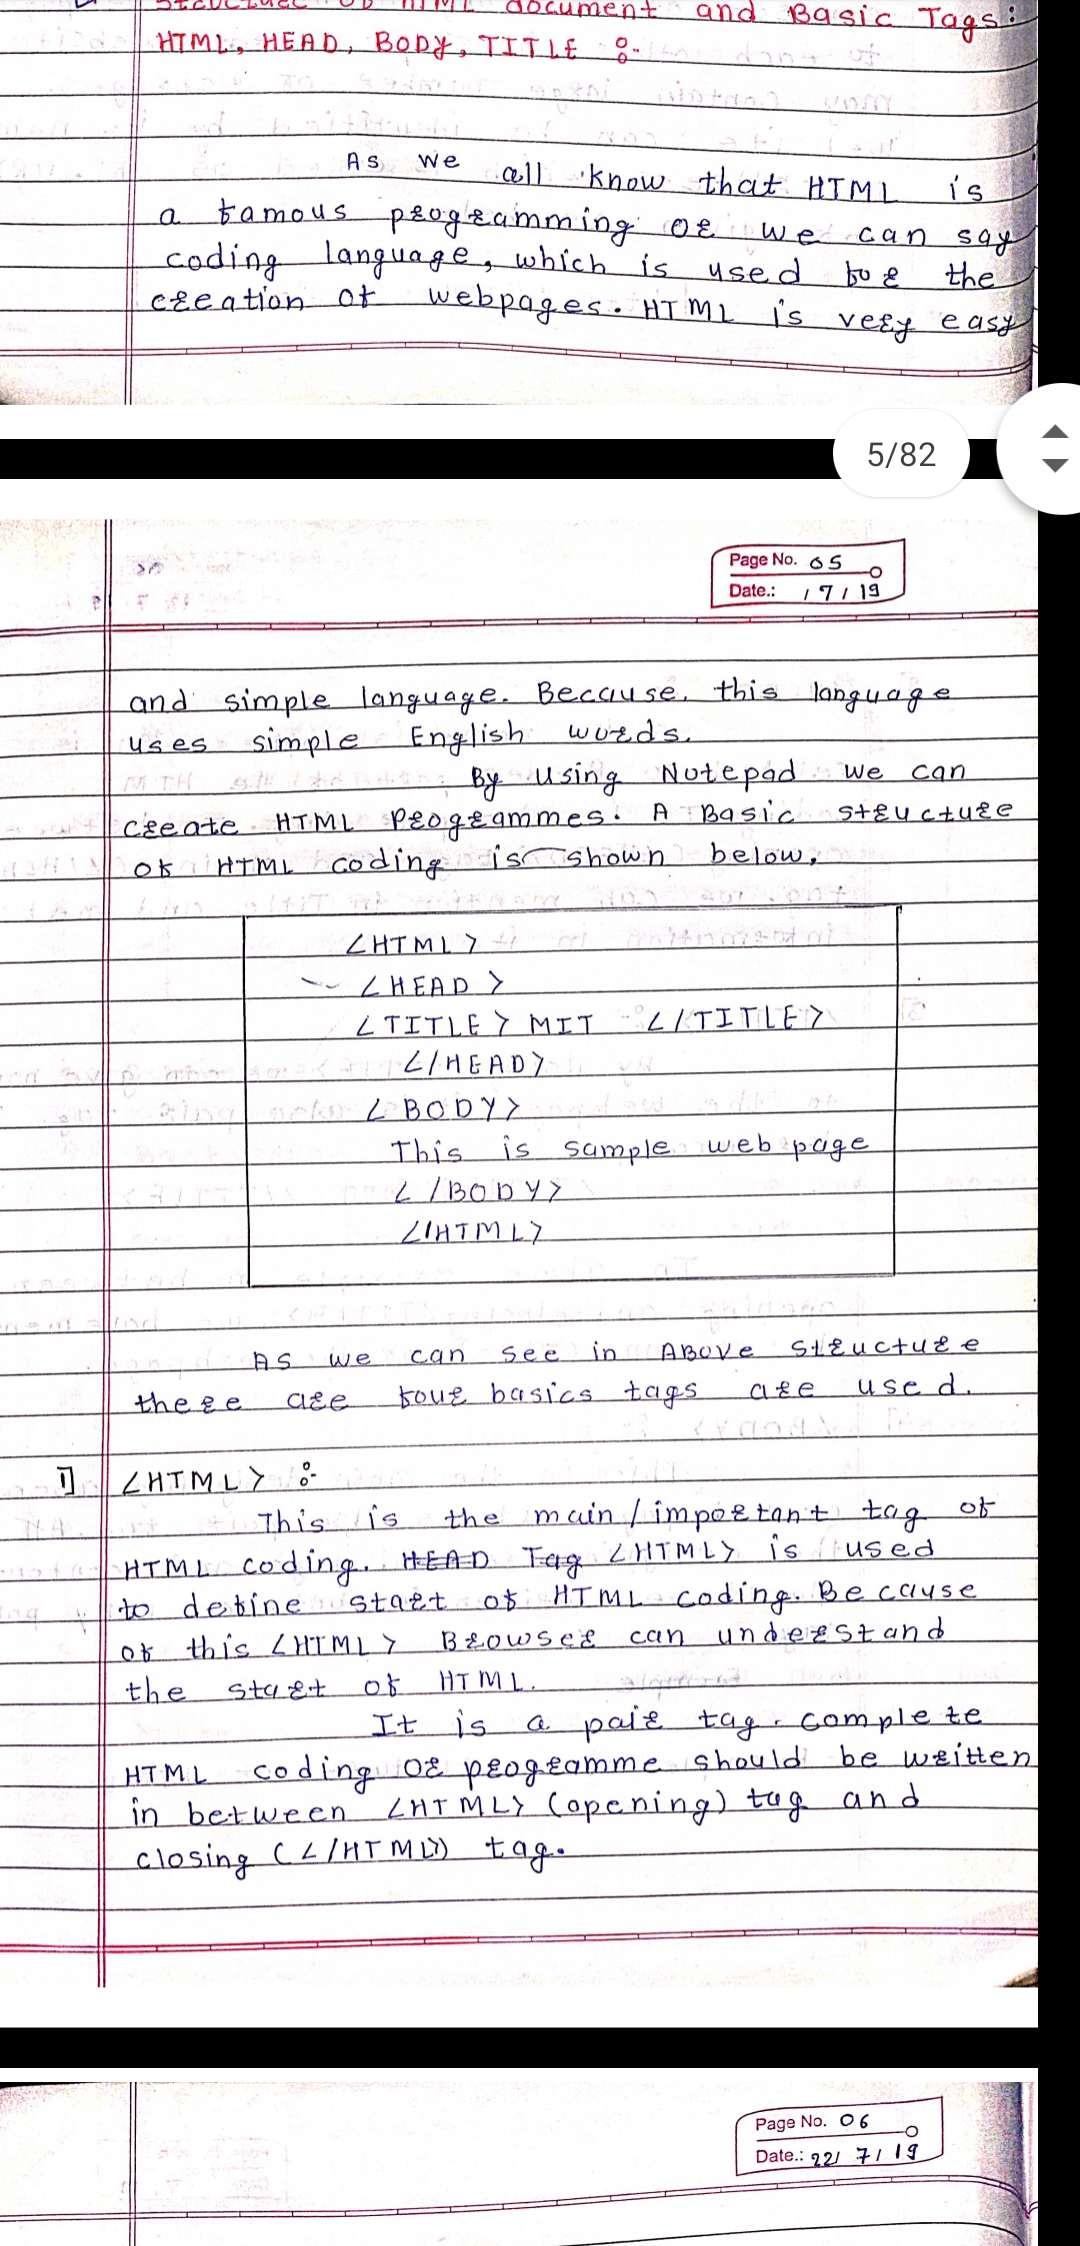 Structure of HTML document and Basic Tags:
HTML, HEAD, BODY, TITLE :-
As we all know that HTML is
a famous programming or we can say
coding language, which is used for the
creation of webpages. HTML is very easy
5/82
Page No. 05
Date.: / 7 / 19
and simple language. Because, this language
uses simple English words.
By using Notepad we can
create HTML Programmes. A Basic structure
of HTML coding is shown below,
<HTML>
<HEAD>
<TITLE> MIT </TITLE>
</HEAD>
<BODY>
This is sample web page
</BODY>
</HTML>
As we can see in Above structure
there are four basics tags are used.
1] <HTML> :-
This is the main / important tag of
HTML coding. HEAD Tag <HTML> is used
to define start of HTML coding. Because
of this <HTML> Browser can understand
the start of HTML.
It is a pair tag. complete
HTML coding or programme should be written
in between <HTML> (opening) tag and
closing (</HTML>) tag.
Page No. 06
Date.: 22/ 7/ 19